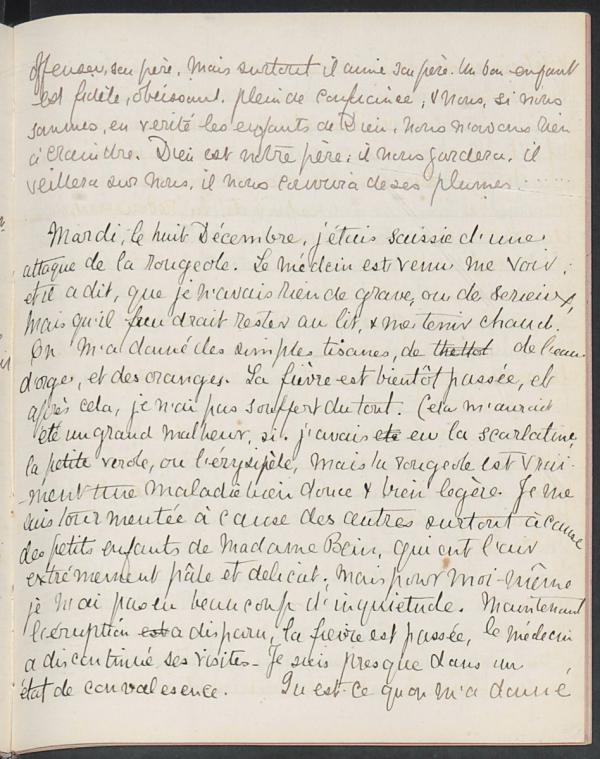 offenser, son père, mais surtout il aime son père. Un bon enfant
est fidèle, obéissant, plein de confiaince, & nous, si nous
sommes, en verité les enfants de Dieu, nous n'avons rien
à craindre. Dieu est notre père; il nous gardera, il
veillera sur nous, il nous couvrira de ses plumes.
Mardi, le huit Décembre, j'étais saissie d'une
attaque de la rougeole. Le médecin est venu me voir,
et il a dit, que je n'avais rien de grave, ou de serieux,
mais qu'il faudrait rester au lit, & me tenir chaud.
On m'a donné des simples tisanes, de de l'eau
d'orge, et des oranges. La fièvre est bientôt passée, et
après cela, je n'ai pas souffert du tout. Cela m'aurait
été un grand malheur, si j'avais eté eu la scarlatine,
la petite verole, ou l'érysipèle, mais la rougeole est vrai-
-ment une maladie bien douce & bien legère. Je me
suis tourmentée à cause des autres surtout à cause
des petits enfants de Madame Bein, qui ont l'air
extrémement pâle et delicat; mais pour moi-même
je n'ai pas eu beaucoup d'inquietude. Maintenant
l'éruption est a disparu, la fièvre est passée, le médecin
a discontinué ses visites - Je suis presque dans un
état de convalesence. Qu'est-ce qu'on m'a donné